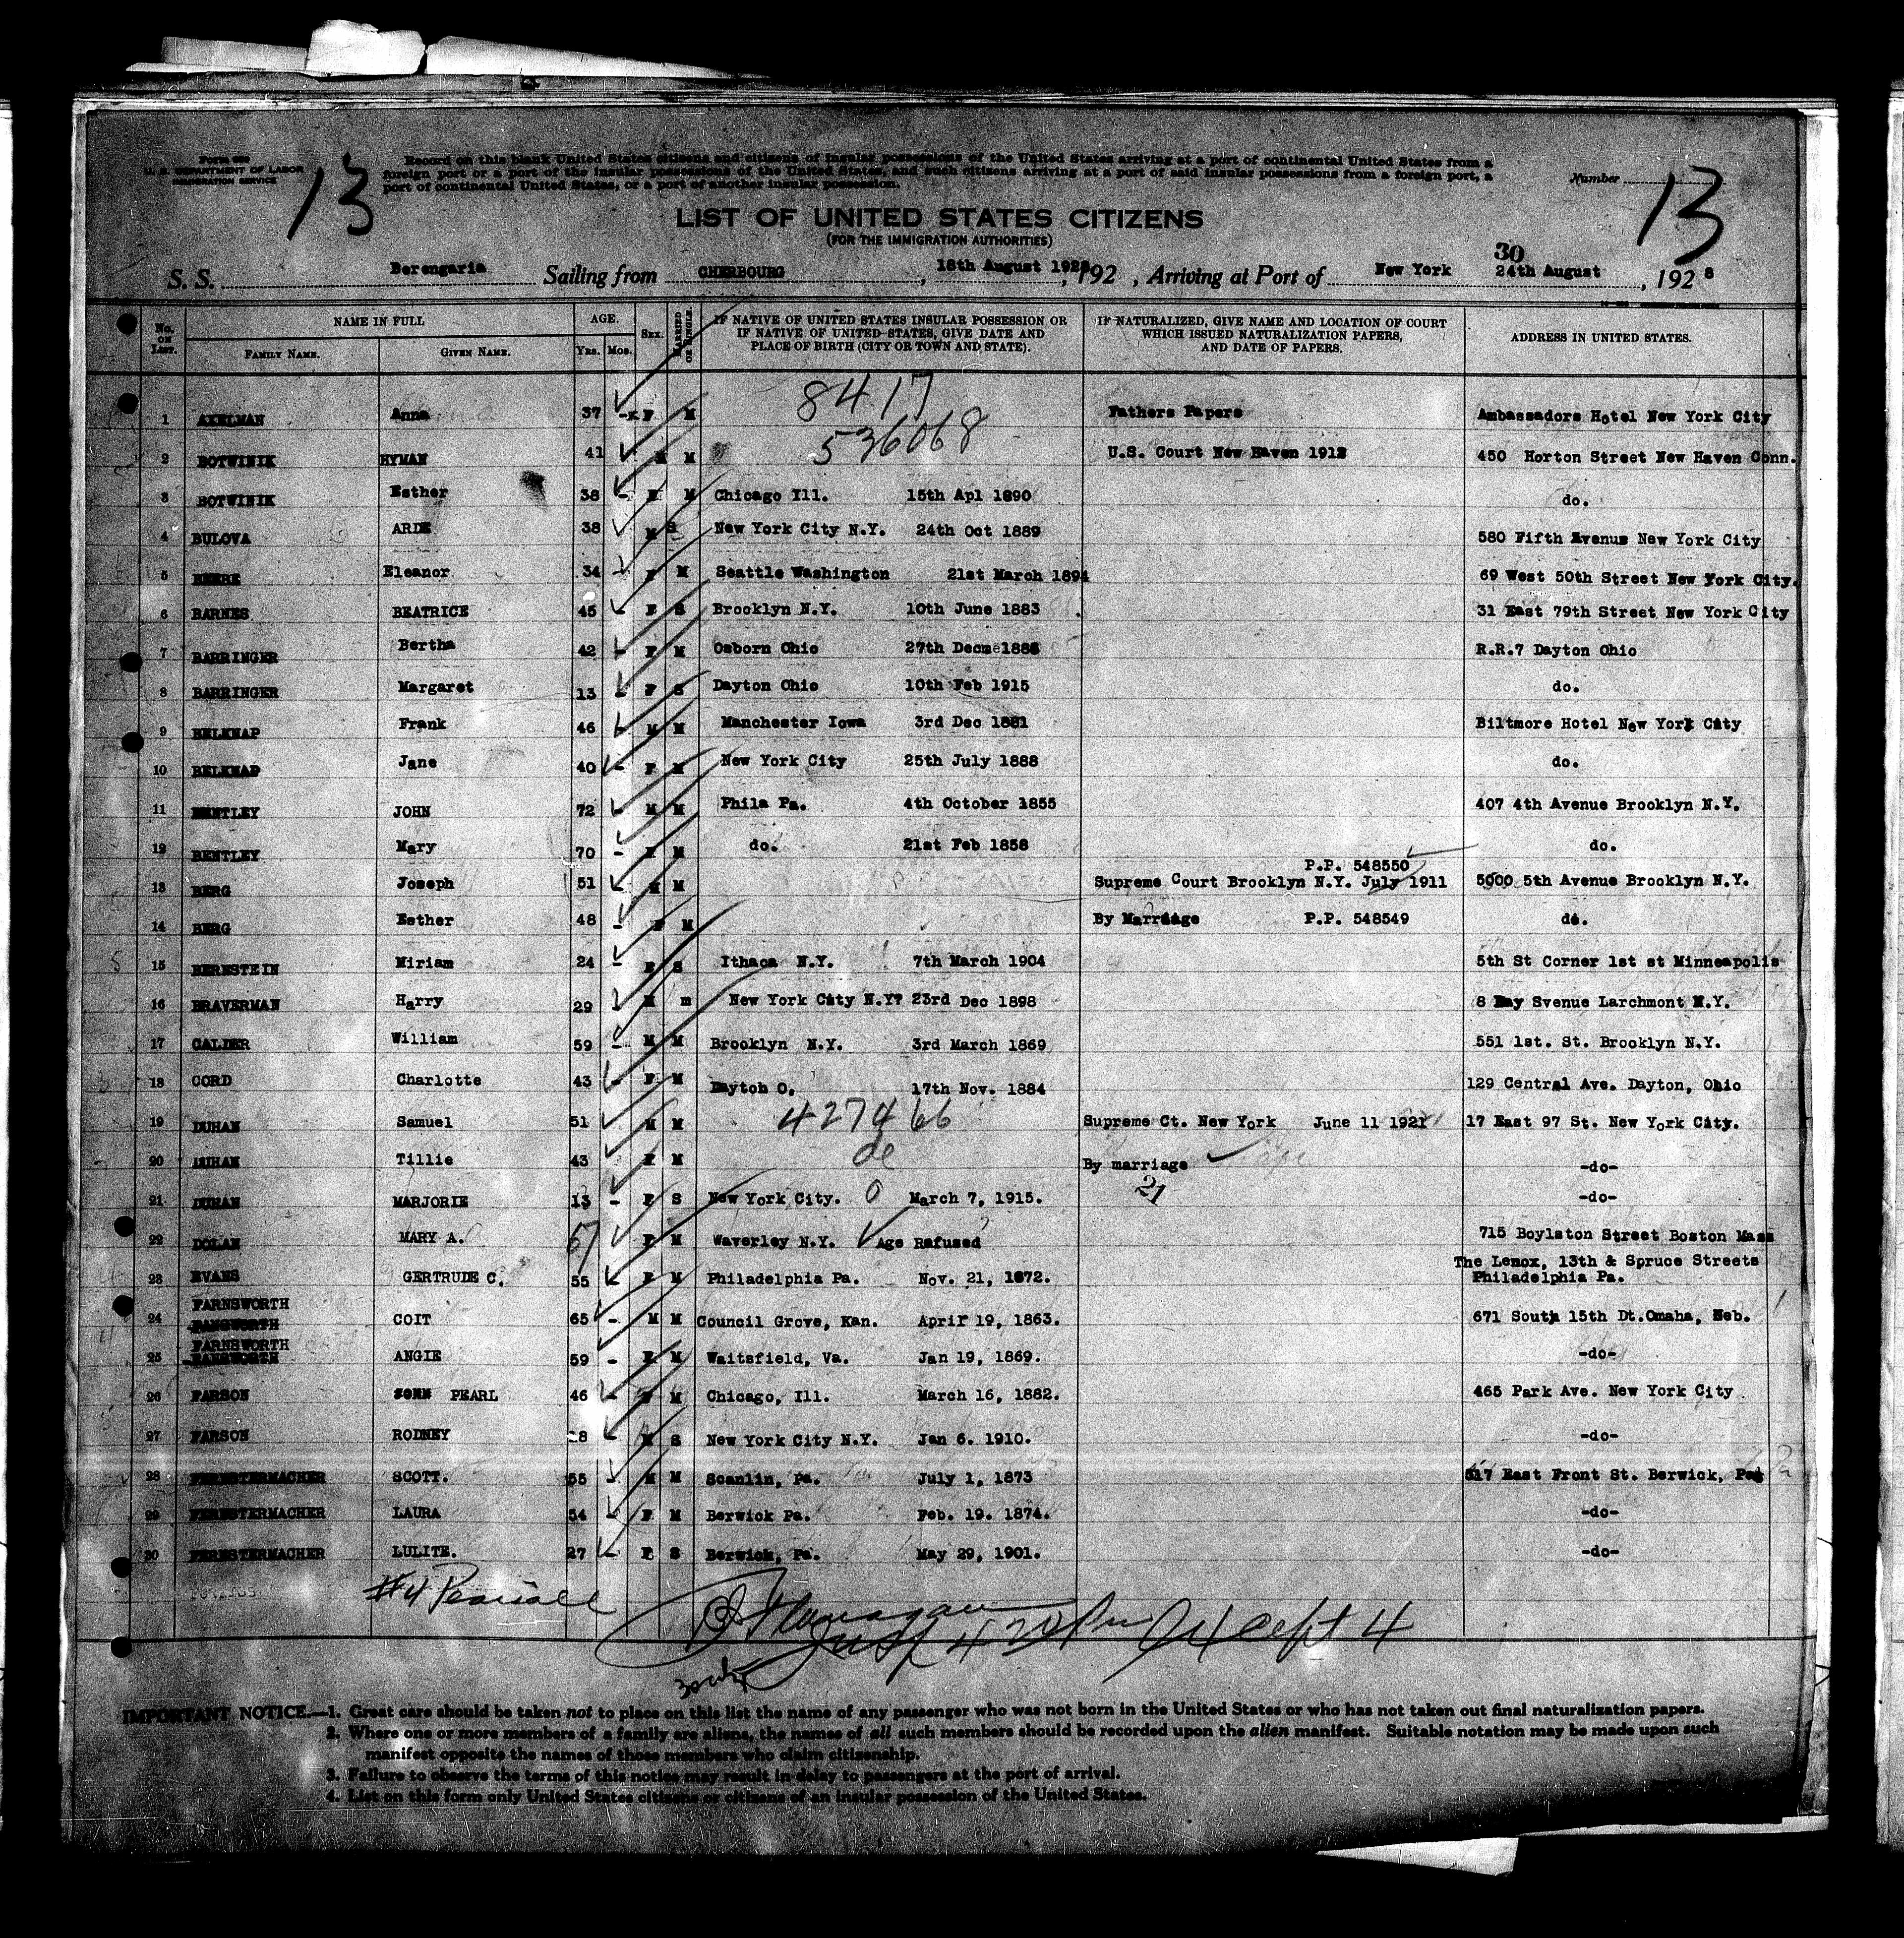 Form 630
U. S. DEPARTMENT OF LABOR
IMMIGRATION SERVICE
13
Record on this blank United States citizens and citizens of insular possessions of the United States arriving at a port of continental United States from a
foreign port or a port of the insular possessions of the United States, and such citizens arriving at a port of said insular possessions from a foreign port, a
port of continental United States, or a port of another insular possession.
Number
13
LIST OF UNITED STATES CITIZENS
(FOR THE IMMIGRATION AUTHORITIES)
30
S. S. Berengaria Sailing from CHERBOURG, 18th August 1928, 192 , Arriving at Port of New York 24th August, 1928
No. ON LIST. NAME IN FULL AGE. SEX. MARRIED OR SINGLE. IF NATIVE OF UNITED STATES INSULAR POSSESSION OR IF NATIVE OF UNITED STATES, GIVE DATE AND PLACE OF BIRTH (CITY OR TOWN AND STATE). IF NATURALIZED, GIVE NAME AND LOCATION OF COURT WHICH ISSUED NATURALIZATION PAPERS, AND DATE OF PAPERS. ADDRESS IN UNITED STATES.
FAMILY NAME. GIVEN NAME. Yrs. Mos.
8417
1 AXELMAN Anna 37 - F M Fathers Papers Ambassadors Hotel New York City
536068
2 BOTWINIK HYMAN 41 M M U.S. Court New Haven 1912 450 Horton Street New Haven Conn.
3 BOTWINIK Esther 38 - F M Chicago Ill. 15th Apl 1890 do.
4 BULOVA ARDE 38 M S New York City N.Y. 24th Oct 1889 580 Fifth Avenue New York City
5 BEEBE Eleanor 34 F M Seattle Washington 21st March 1894 69 West 50th Street New York City.
6 BARNES BEATRICE 45 - F S Brooklyn N.Y. 10th June 1883 31 East 79th Street New York City
7 BARRINGER Bertha 42 - F M Osborn Ohio 27th Decme 1885 R.R.7 Dayton Ohio
8 BARRINGER Margaret 13 - F S Dayton Ohio 10th Feb 1915 do.
9 BELKNAP Frank 46 - M M Manchester Iowa 3rd Dec 1881 Biltmore Hotel New York City
10 BELKNAP Jane 40 - F M New York City 25th July 1888 do.
11 BENTLEY JOHN 72 - M M Phila Pa. 4th October 1855 407 4th Avenue Brooklyn N.Y.
12 BENTLEY Mary 70 - F M do. 21st Feb 1858 do.
P.P. 548550
13 BERG Joseph 51 M M Supreme Court Brooklyn N.Y. July 1911 5000 5th Avenue Brooklyn N.Y.
14 BERG Esther 48 - F M By Marriage P.P. 548549 do.
15 BERNSTEIN Miriam 24 - F S Ithaca N.Y. 7th March 1904 5th St Corner 1st st Minneapolis
16 BRAVERMAN Harry 29 M m New York City N.Y? 23rd Dec 1898 8 Bay Svenue Larchmont N.Y.
17 CALDER William 59 - M M Brooklyn N.Y. 3rd March 1869 551 1st. St. Brooklyn N.Y.
18 CORD Charlotte 43 - F M Dayton O. 17th Nov. 1884 129 Central Ave. Dayton, Ohio
19 DUHAN Samuel 51 M M 427466 Supreme Ct. New York June 11 1921 17 East 97 St. New York City.
20 DUHAN Tillie 43 - F M do By marriage -do-
21
21 DUHAN MARJORIE 13 - F S New York City. March 7, 1915. -do-
22 DOLAN MARY A. 67 F M Waverley N.Y. Age Refused 715 Boylston Street Boston Mass
23 EVANS GERTRUDE C. 55 - F M Philadelphia Pa. Nov. 21, 1872. The Lenox, 13th & Spruce Streets Philadelphia Pa.
24 FARNSWORTH COIT 65 - M M Council Grove, Kan. April 19, 1863. 671 South 15th Dt.Omaha, Neb.
25 FARNSWORTH ANGIE 59 - F M Waitsfield, Va. Jan 19, 1869. -do-
26 FARSON PEARL 46 - F M Chicago, Ill. March 16, 1882. 465 Park Ave. New York City
27 FARSON RODNEY 18 M S New York City N.Y. Jan 6. 1910. -do-
28 FERESTERMACHER SCOTT. 55 - M M Scanlin, Pa. July 1, 1873 517 East Front St. Berwick, Pa
29 FERESTERMACHER LAURA 54 - F M Berwick Pa. Feb. 19. 1874. -do-
30 FERESTERMACHER LULITE. 27 - F S Berwick, Pa. May 29, 1901. -do-
#4
Flanagan
4
IMPORTANT NOTICE.—1. Great care should be taken not to place on this list the name of any passenger who was not born in the United States or who has not taken out final naturalization papers.
2. Where one or more members of a family are aliens, the names of all such members should be recorded upon the alien manifest. Suitable notation may be made upon such
manifest opposite the names of those members who claim citizenship.
3. Failure to observe the terms of this notice may result in delay to passengers at the port of arrival.
4. List on this form only United States citizens or citizens of an insular possession of the United States.